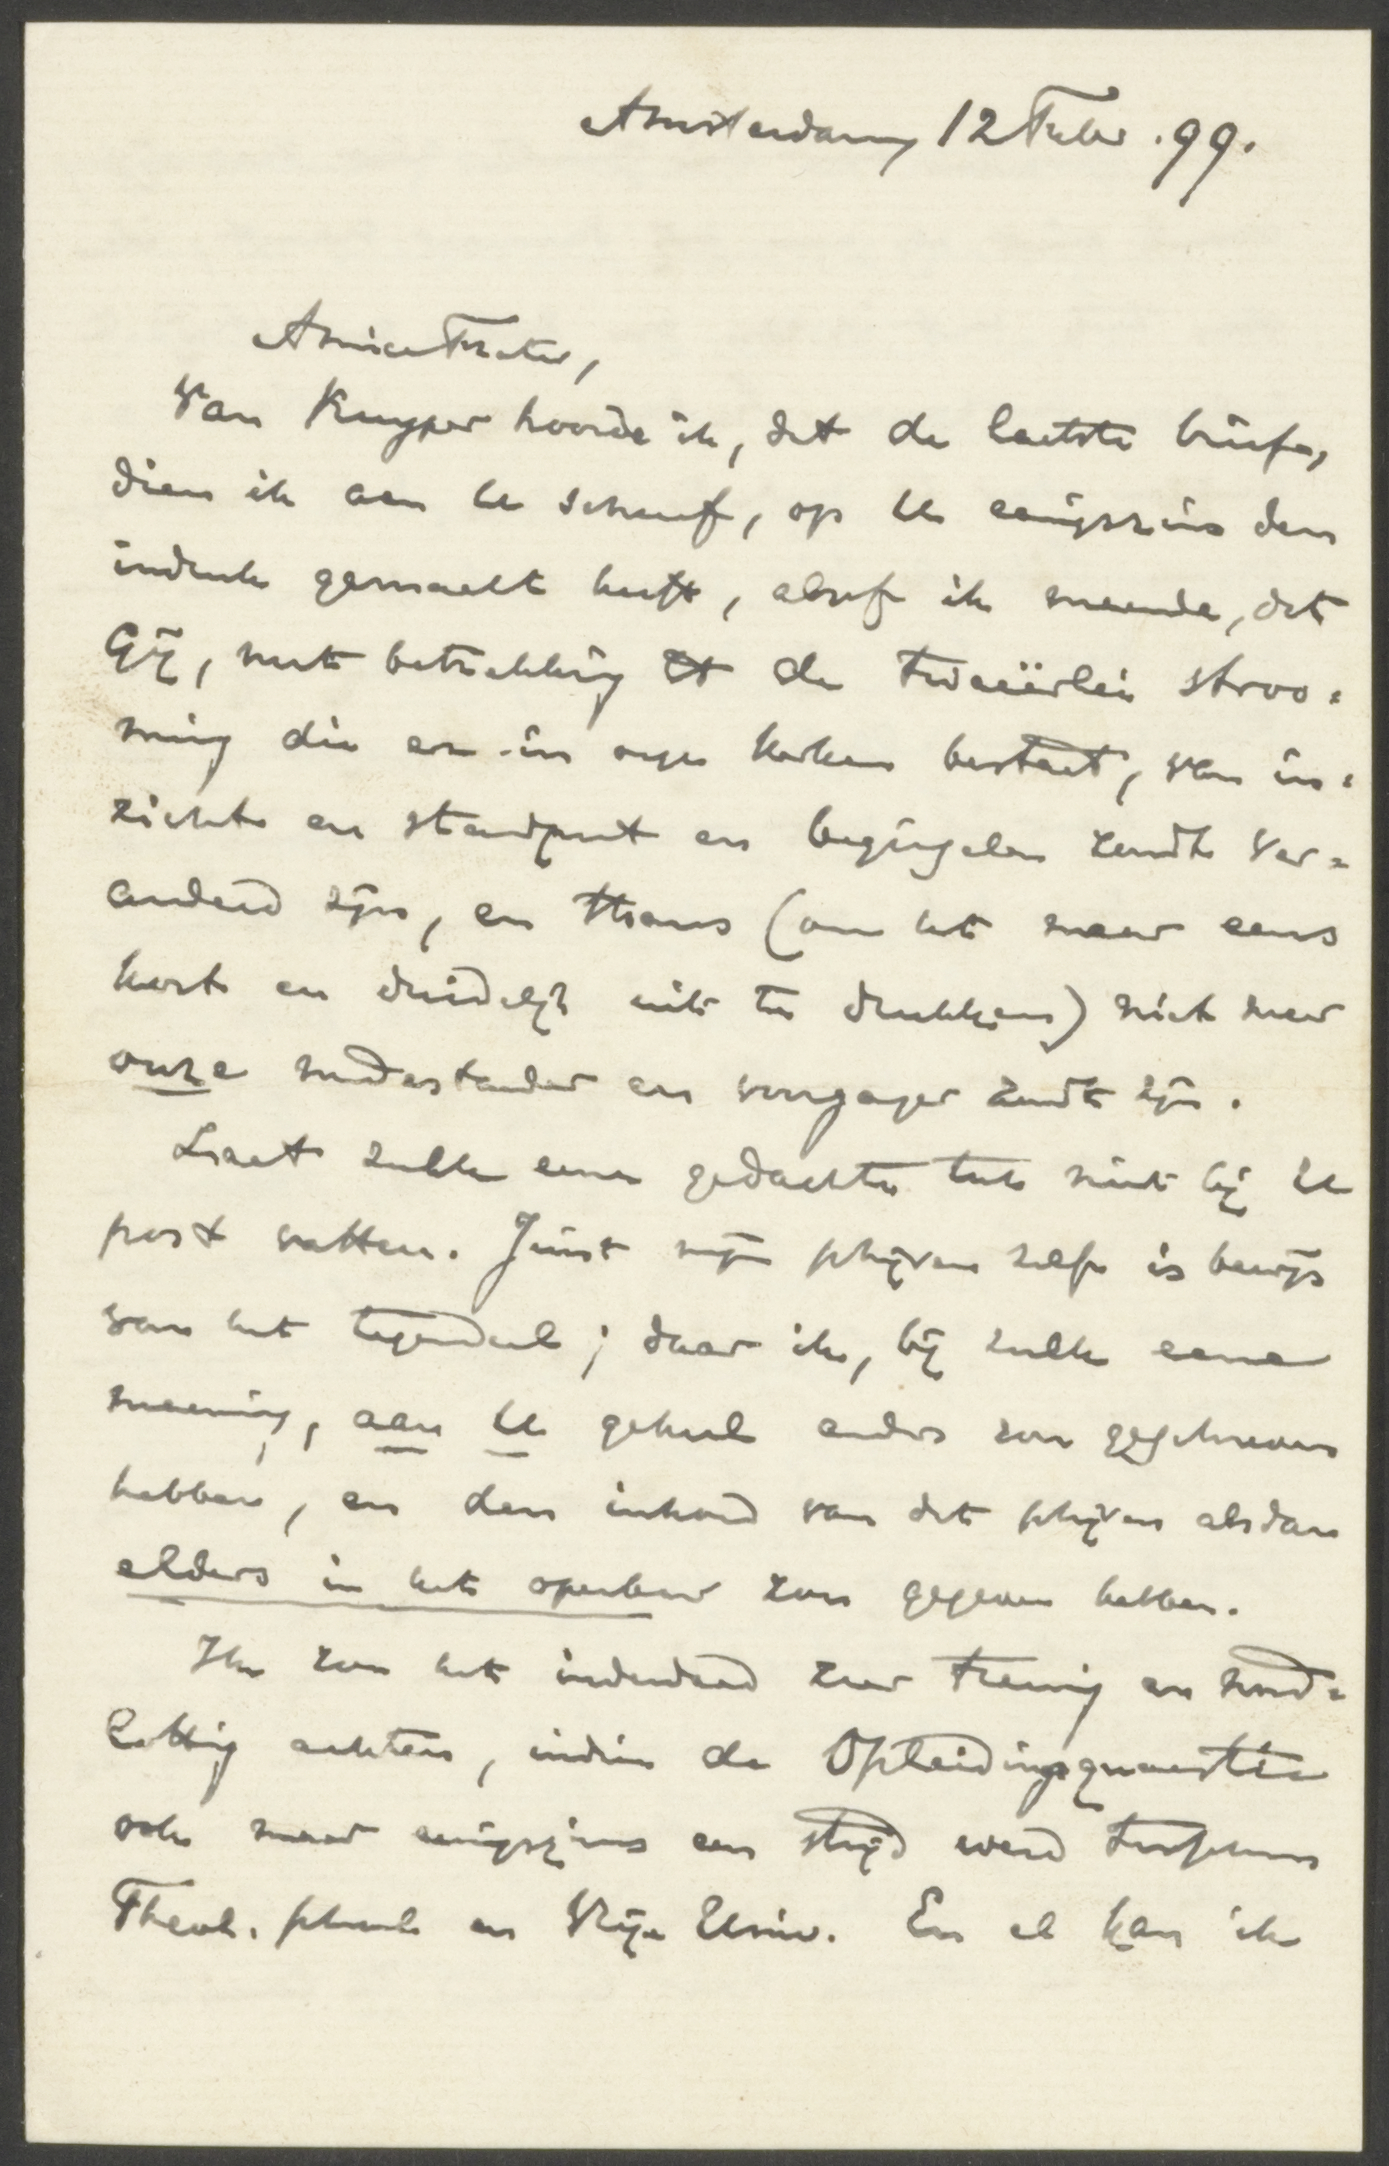 Amsterdam, 12 Febr. 99.
Amice Frater,
Van Kuyper hoorde ik, dat de laatste brief,
dien ik aan U schreef, op U eenigszins den
indruk gemaakt heeft, alsof ik meende, dat
Gij, met betrekking tot de tweeërlei stroo=
ming die er in onze kerken bestaat, van in=
zicht en standpunt en beginselen zoudt ver=
anderd zijn, en thans (om het maar eens
kort en duidelijk uit te drukken) niet meer
onze medestander en voorganger zoudt zijn.
Laat zulk eene gedachte toch niet bij U
post vatten. Juist mijn schrijven zelf is bewijs
van het tegendeel; daar ik, bij zulk eene
meening, aan U geheel anders zou geschreven
hebben, en den inhoud van dat schrijven alsdan
elders in het openbaar zou gegeven hebben.
Ik zou het inderdaad zeer treurig en nood=
lottig achten, indien de Opleidingsquaestie
ook maar eenigszins een strijd werd tusschen
Theol. School en Vrije Univ. En al kan ik